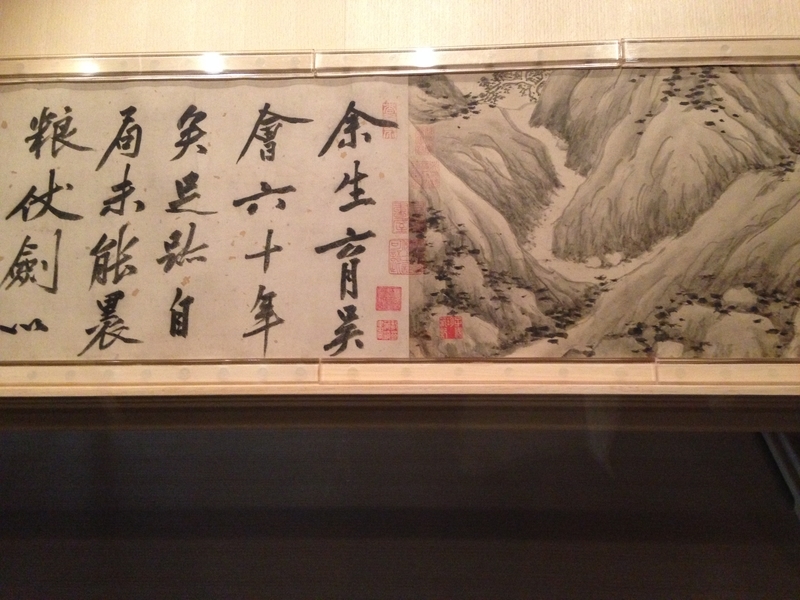 余生育吴
會六十年
矣足跡自
局未能裹
粮仗劍以